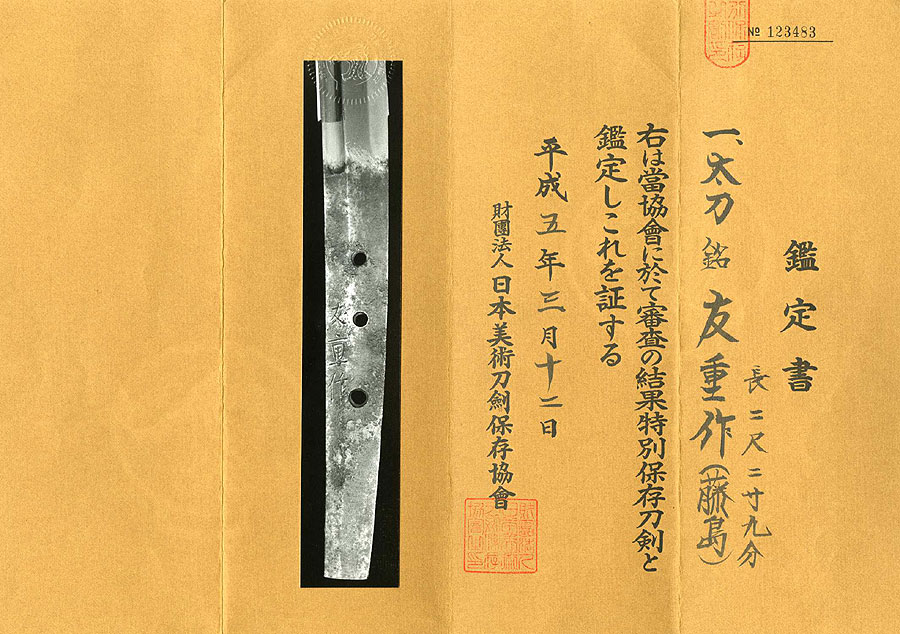 № 123483
鑑定書
一、太刀 銘 友重作(藤島)
長二尺二寸九分
右は當協會に於て審査の結果特別保存刀剣と
鑑定しこれを証する
平成五年三月十二日
財團法人日本美術刀劍保存協會
友重作